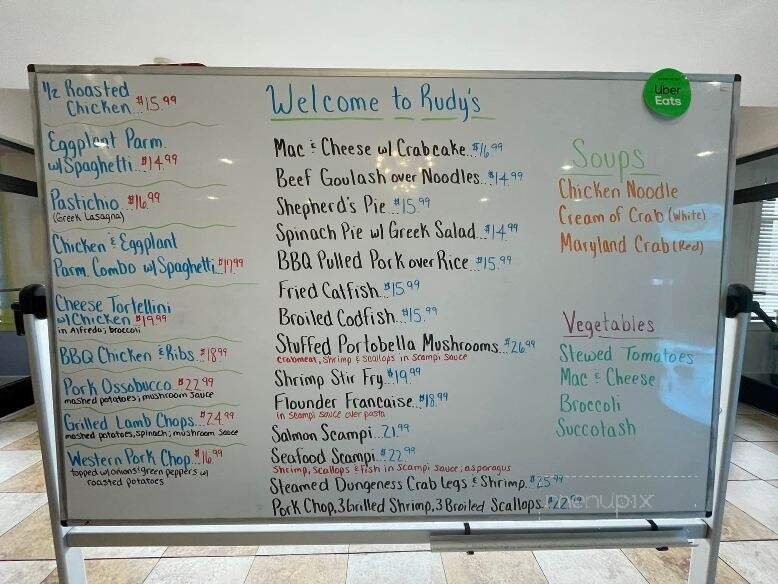 1/2 Roasted
Chicken $15.99
Eggplant Parm.
w/Spaghetti...$14.99
Pastichio $16.99
(Greek Lasagna)
Chicken & Eggplant
Parm. Combo w/Spaghetti.$17.99
Cheese Tortellini
w/Chicken $19.99
in Alfredo & broccoli
BBQ Chicken & Ribs..$18.99
Pork Ossobucco $22.99
mashed potatoes & mushroom sauce
Grilled Lamb Chops...$24.99
mashed potatoes, spinach & mushroom sauce
Western Pork Chop...$16.99
topped w/onions & green peppers w/
roasted potatoes
Welcome to Rudy's
Mac & Cheese w/ Crabcake..$16.99
Beef Goulash over Noodles...$14.99
Shepherd's Pie...$15.99
Spinach Pie w/ Greek Salad...$14.99
BBQ Pulled Pork over Rice...$15.99
Fried Catfish..$15.99
Broiled Codfish...$15.99
Stuffed Portobella Mushrooms...$26.99
Crabmeat, Shrimp & Scallops in Scampi Sauce
Shrimp Stir Fry..$19.99
Flounder Francaise..$18.99
in Scampi sauce over pasta
Salmon Scampi...21.99
Seafood Scampi...$22.99
Shrimp, Scallops & Fish in Scampi Sauce & asparagus
Steamed Dungeness Crab Legs & Shrimp..$25.99
Pork Chop, 3 Grilled Shrimp, 3 Broiled Scallops..$22.99
Uber
Eats
Soups
Chicken Noodle
Cream of Crab (White)
Maryland Crab (Red)
Vegetables
Stewed Tomatoes
Mac & Cheese
Broccoli
Succotash
menupix